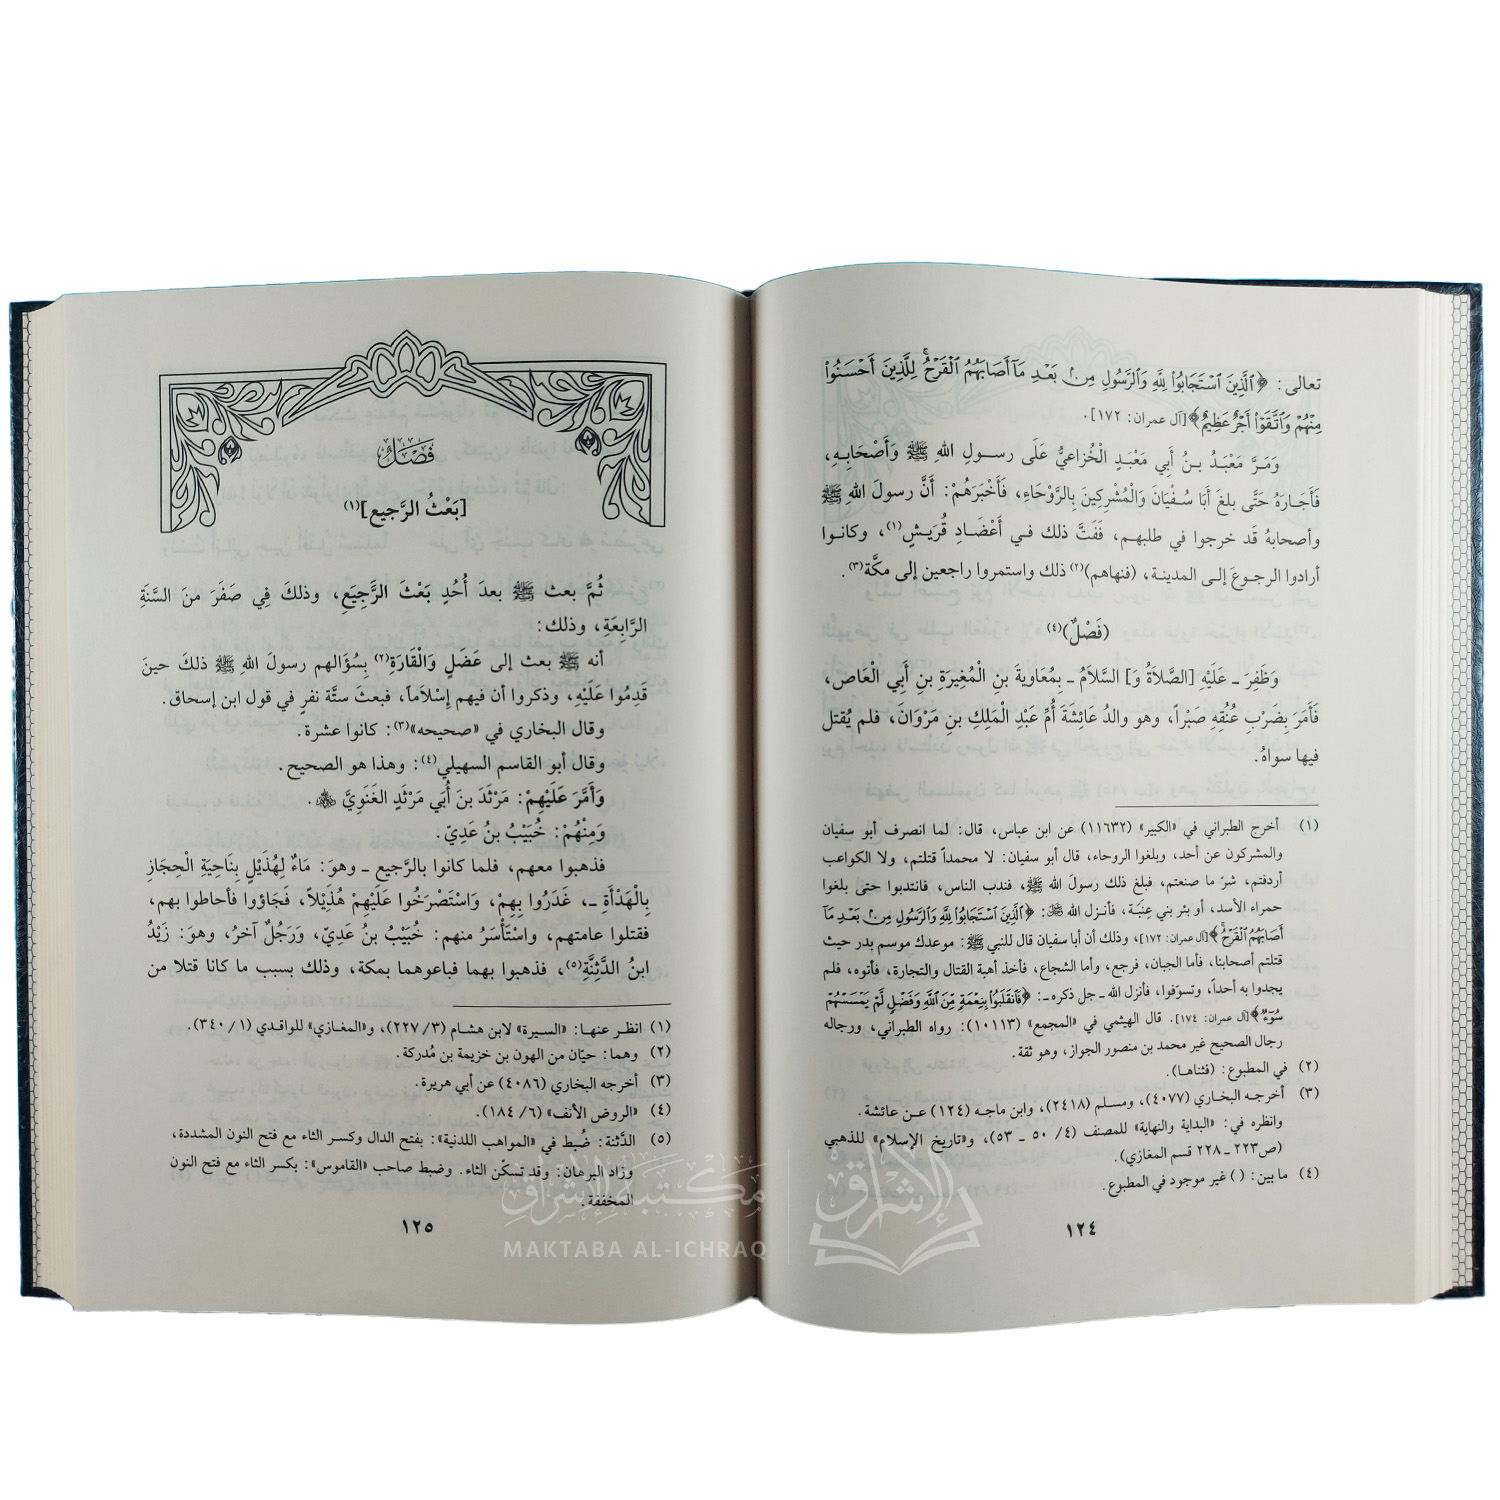 تعالى: ﴿ٱلَّذِينَ ٱسْتَجَابُوا۟ لِلَّهِ وَٱلرَّسُولِ مِنۢ بَعْدِ مَآ أَصَابَهُمُ ٱلْقَرْحُ ۚ لِلَّذِينَ أَحْسَنُوا۟
مِنْهُمْ وَٱتَّقَوْا۟ أَجْرٌ عَظِيمٌ﴾ [آل عمران: ١٧٢].
وَمَرَّ مَعْبَدُ بنُ أبي مَعْبَدٍ الْخُزاعيُّ عَلَى رسولِ اللهِ ﷺ وَأَصْحَابِهِ،
فَأَجَارَهُ حَتَّى بلغَ أَبَا سُفْيَانَ وَالْمُشْرِكِينَ بِالرَّوْحَاءِ، فَأَخْبَرَهُمْ: أَنَّ رسولَ اللهِ ﷺ
وأصحابهُ قَد خرجوا في طلبهم، فَفَتَّ ذلك في أَعْضَادِ قُرَيشٍ(١)، وكانوا
أرادوا الرجوعَ إلى المدينة، (فنهاهم)(٢) ذلك واستمروا راجعين إلى مكَّة(٣).
(فَصْلٌ)(٤)
وَظَفِرَ ـ عَلَيْهِ [الصَّلاَةُ وَ] السَّلاَمُ ـ بِمُعَاويةَ بنِ الْمُغِيرَةِ بنِ أَبِي الْعَاص،
فَأَمَرَ بِضَرْبِ عُنُقِهِ صَبْراً، وهو والدُ عَائِشَةَ أُمِّ عَبْدِ الْمَلِكِ بنِ مَرْوَانَ، فلم يُقتل
فيها سواهُ.
(١) أخرج الطبراني في «الكبير» (١١٦٣٢) عن ابن عباس، قال: لما انصرف أبو سفيان
والمشركون عن أحد، وبلغوا الروحاء، قال أبو سفيان: لا محمداً قتلتم، ولا الكواعب
أردفتم، شرّ ما صنعتم، فبلغ ذلك رسول الله ﷺ، فندب الناس، فانتدبوا حتى بلغوا
حمراء الأسد، أو بئر بني عِنَبَة، فأنزل الله ﷻ: ﴿ٱلَّذِينَ ٱسْتَجَابُوا۟ لِلَّهِ وَٱلرَّسُولِ مِنۢ بَعْدِ مَآ
أَصَابَهُمُ ٱلْقَرْحُ﴾ [آل عمران: ١٧٢]، وذلك أن أبا سفيان قال للنبي ﷺ: موعدك موسم بدر حيث
قتلتم أصحابنا، فأما الجبان، فرجع، وأما الشجاع، فأخذ أهبة القتال والتجارة، فأتوه، فلم
يجدوا به أحداً، وتسوّفوا، فأنزل الله ـ جل ذكره ـ: ﴿فَٱنقَلَبُوا۟ بِنِعْمَةٍ مِّنَ ٱللَّهِ وَفَضْلٍ لَّمْ يَمْسَسْهُمْ
سُوٓءٌ﴾ [آل عمران: ١٧٤]. قال الهيثمي في «المجمع» (١٠١١٣): رواه الطبراني، ورجاله
رجال الصحيح غير محمد بن منصور الجواز، وهو ثقة.
(٢) في المطبوع: (فثناها).
(٣) أخرجه البخاري (٤٠٧٧)، ومسلم (٢٤١٨)، وابن ماجه (١٢٤) عن عائشة.
وانظره في: «البداية والنهاية» للمصنف (٤/ ٥٠ ـ ٥٣)، و«تاريخ الإسلام» للذهبي
(ص٢٢٣ ـ ٢٢٨ قسم المغازي).
(٤) ما بين: ( ) غير موجود في المطبوع.
١٢٤
فَصْلٌ
[بَعْثُ الرَّجيع](١)
ثُمَّ بعث ﷺ بعدَ أُحُدٍ بَعْثَ الرَّجِيعِ، وذلكَ فِي صَفَرَ منَ السَّنَةِ
الرَّابِعَةِ، وذلك:
أنه ﷺ بعث إلى عَضَلٍ وَالْقَارَةِ(٢) بِسُؤَالهم رسولَ اللهِ ﷺ ذلكَ حينَ
قَدِمُوا عَلَيْهِ، وذكروا أن فيهم إسْلاَماً، فبعثَ ستَّة نفرٍ في قول ابن إسحاق.
وقال البخاري في «صحيحه»(٣): كانوا عشرة.
وقال أبو القاسم السهيلي(٤): وهذا هو الصحيح.
وَأَمَّرَ عَلَيْهِمْ: مَرْثَدَ بنَ أَبي مَرْثَدٍ الغَنَوِيَّ ﷺ.
وَمِنْهُمْ: خُبَيْبُ بنُ عَدِيٍّ.
فذهبوا معهم، فلما كانوا بالرَّجيع ـ وهوَ: مَاءٌ لِهُذَيْلٍ بِنَاحِيَةِ الْحِجَازِ
بِالْهَدْأَةِ ـ، غَدَرُوا بِهِمْ، وَاسْتَصْرَخُوا عَلَيْهِمْ هُذَيْلاً، فَجَاؤوا فأحاطوا بهم،
فقتلوا عامتهم، واسْتَأْسَرُ منهم: خُبَيْبُ بنُ عَدِيٍّ، وَرَجُلٌ آخرُ، وهوَ: زَيْدُ
ابنُ الدَّثِنَّةِ(٥)، فذهبوا بهما فباعوهما بمكة، وذلك بسبب ما كانا قتلا من
(١) انظر عنها: «السيرة» لابن هشام (٣/ ٢٢٧)، و«المغازي» للواقدي (١/ ٣٤٠).
(٢) وهما: حيّان من الهون بن خزيمة بن مُدركة.
(٣) أخرجه البخاري (٤٠٨٦) عن أبي هريرة.
(٤) «الروض الأنف» (٦/ ١٨٤).
(٥) الدَّثنة: ضُبط في «المواهب اللدنية»: بفتح الدال وكسر الثاء مع فتح النون المشددة،
وزاد البرهان: وقد تسكّن الثاء. وضبط صاحب «القاموس»: بكسر الثاء مع فتح النون
المخففة.
١٢٥
مكتبة الإشراق
MAKTABA AL-ICHRAQ
الإشراق